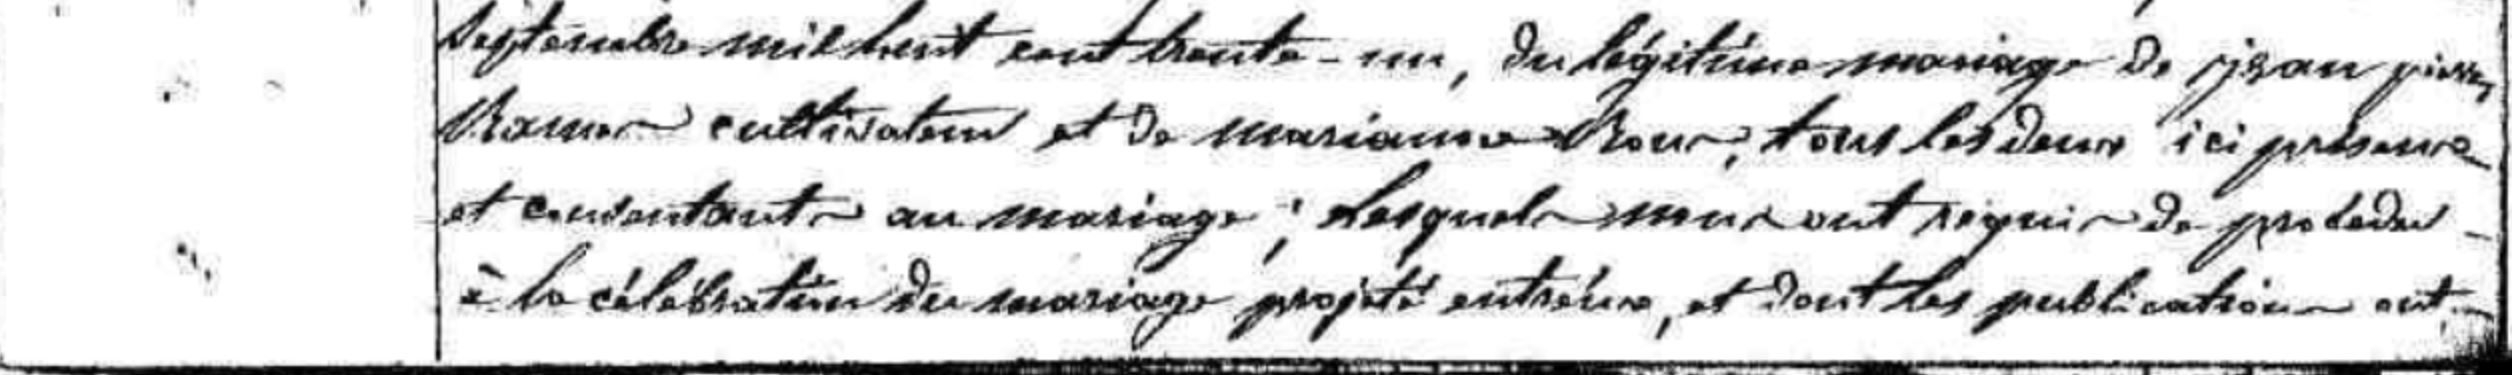 septembre mil huit cent trente-un, du légitime mariage de jean pierre
cultivateur et de marianne Roux, tous les deux ici présens
et consentants au mariage; Lesquels nous ont requis de procéder
à la célébration du mariage projeté entr'éux, et dont les publications ont